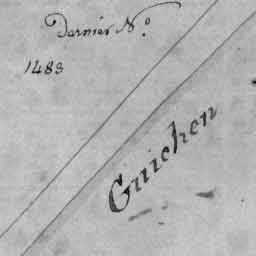 Dernier N.º
1483
Guichen